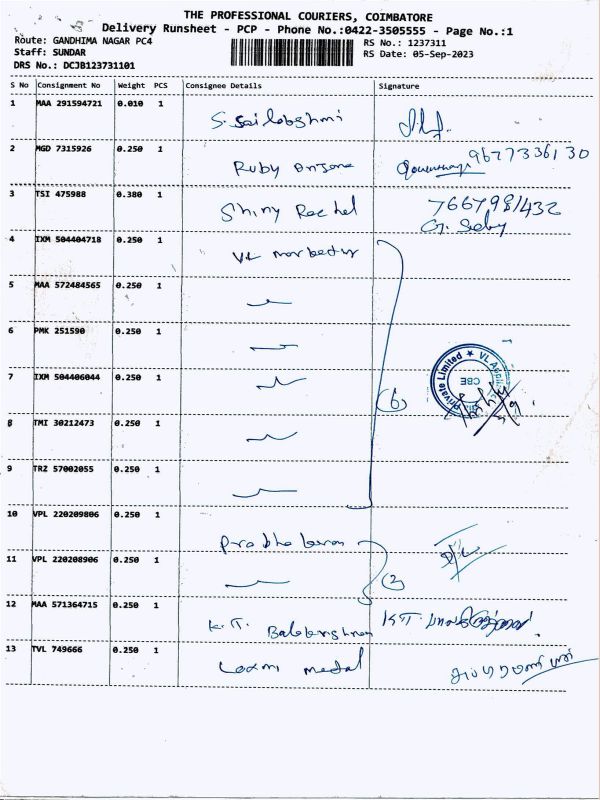 THE PROFESSIONAL COURIERS, COIMBATORE
Delivery Runsheet - PCP - Phone No.:0422-3505555 - Page No.:1
Route: GANDHIMA NAGAR PC4
Staff: SUNDAR
DRS No.: DCJB123731101
RS No.: 1237311
RS Date: 05-Sep-2023
S No Consignment No Weight PCS Consignee Details Signature
1 MAA 291594721 0.010 1 S. Sailakshmi
2 MGD 7315926 0.250 1 Ruby 9677336130
3 TSI 475988 0.380 1 Shiny Rachel 7667981432
G. Seby
4 IXM 504404718 0.250 1 VL
5 MAA 572484565 0.250 1
6 PMK 251590 0.250 1
7 IXM 504406044 0.250 1 (6) Private Limited ★ VL CBE
8 TMI 30212473 0.250 1
9 TRZ 57002055 0.250 1
10 VPL 220209806 0.250 1 Prabhakaran
11 VPL 220208906 0.250 1 (2)
12 MAA 571364715 0.250 1 K.T. Balakrishnan K.T.
13 TVL 749666 0.250 1 Laxmi Metal